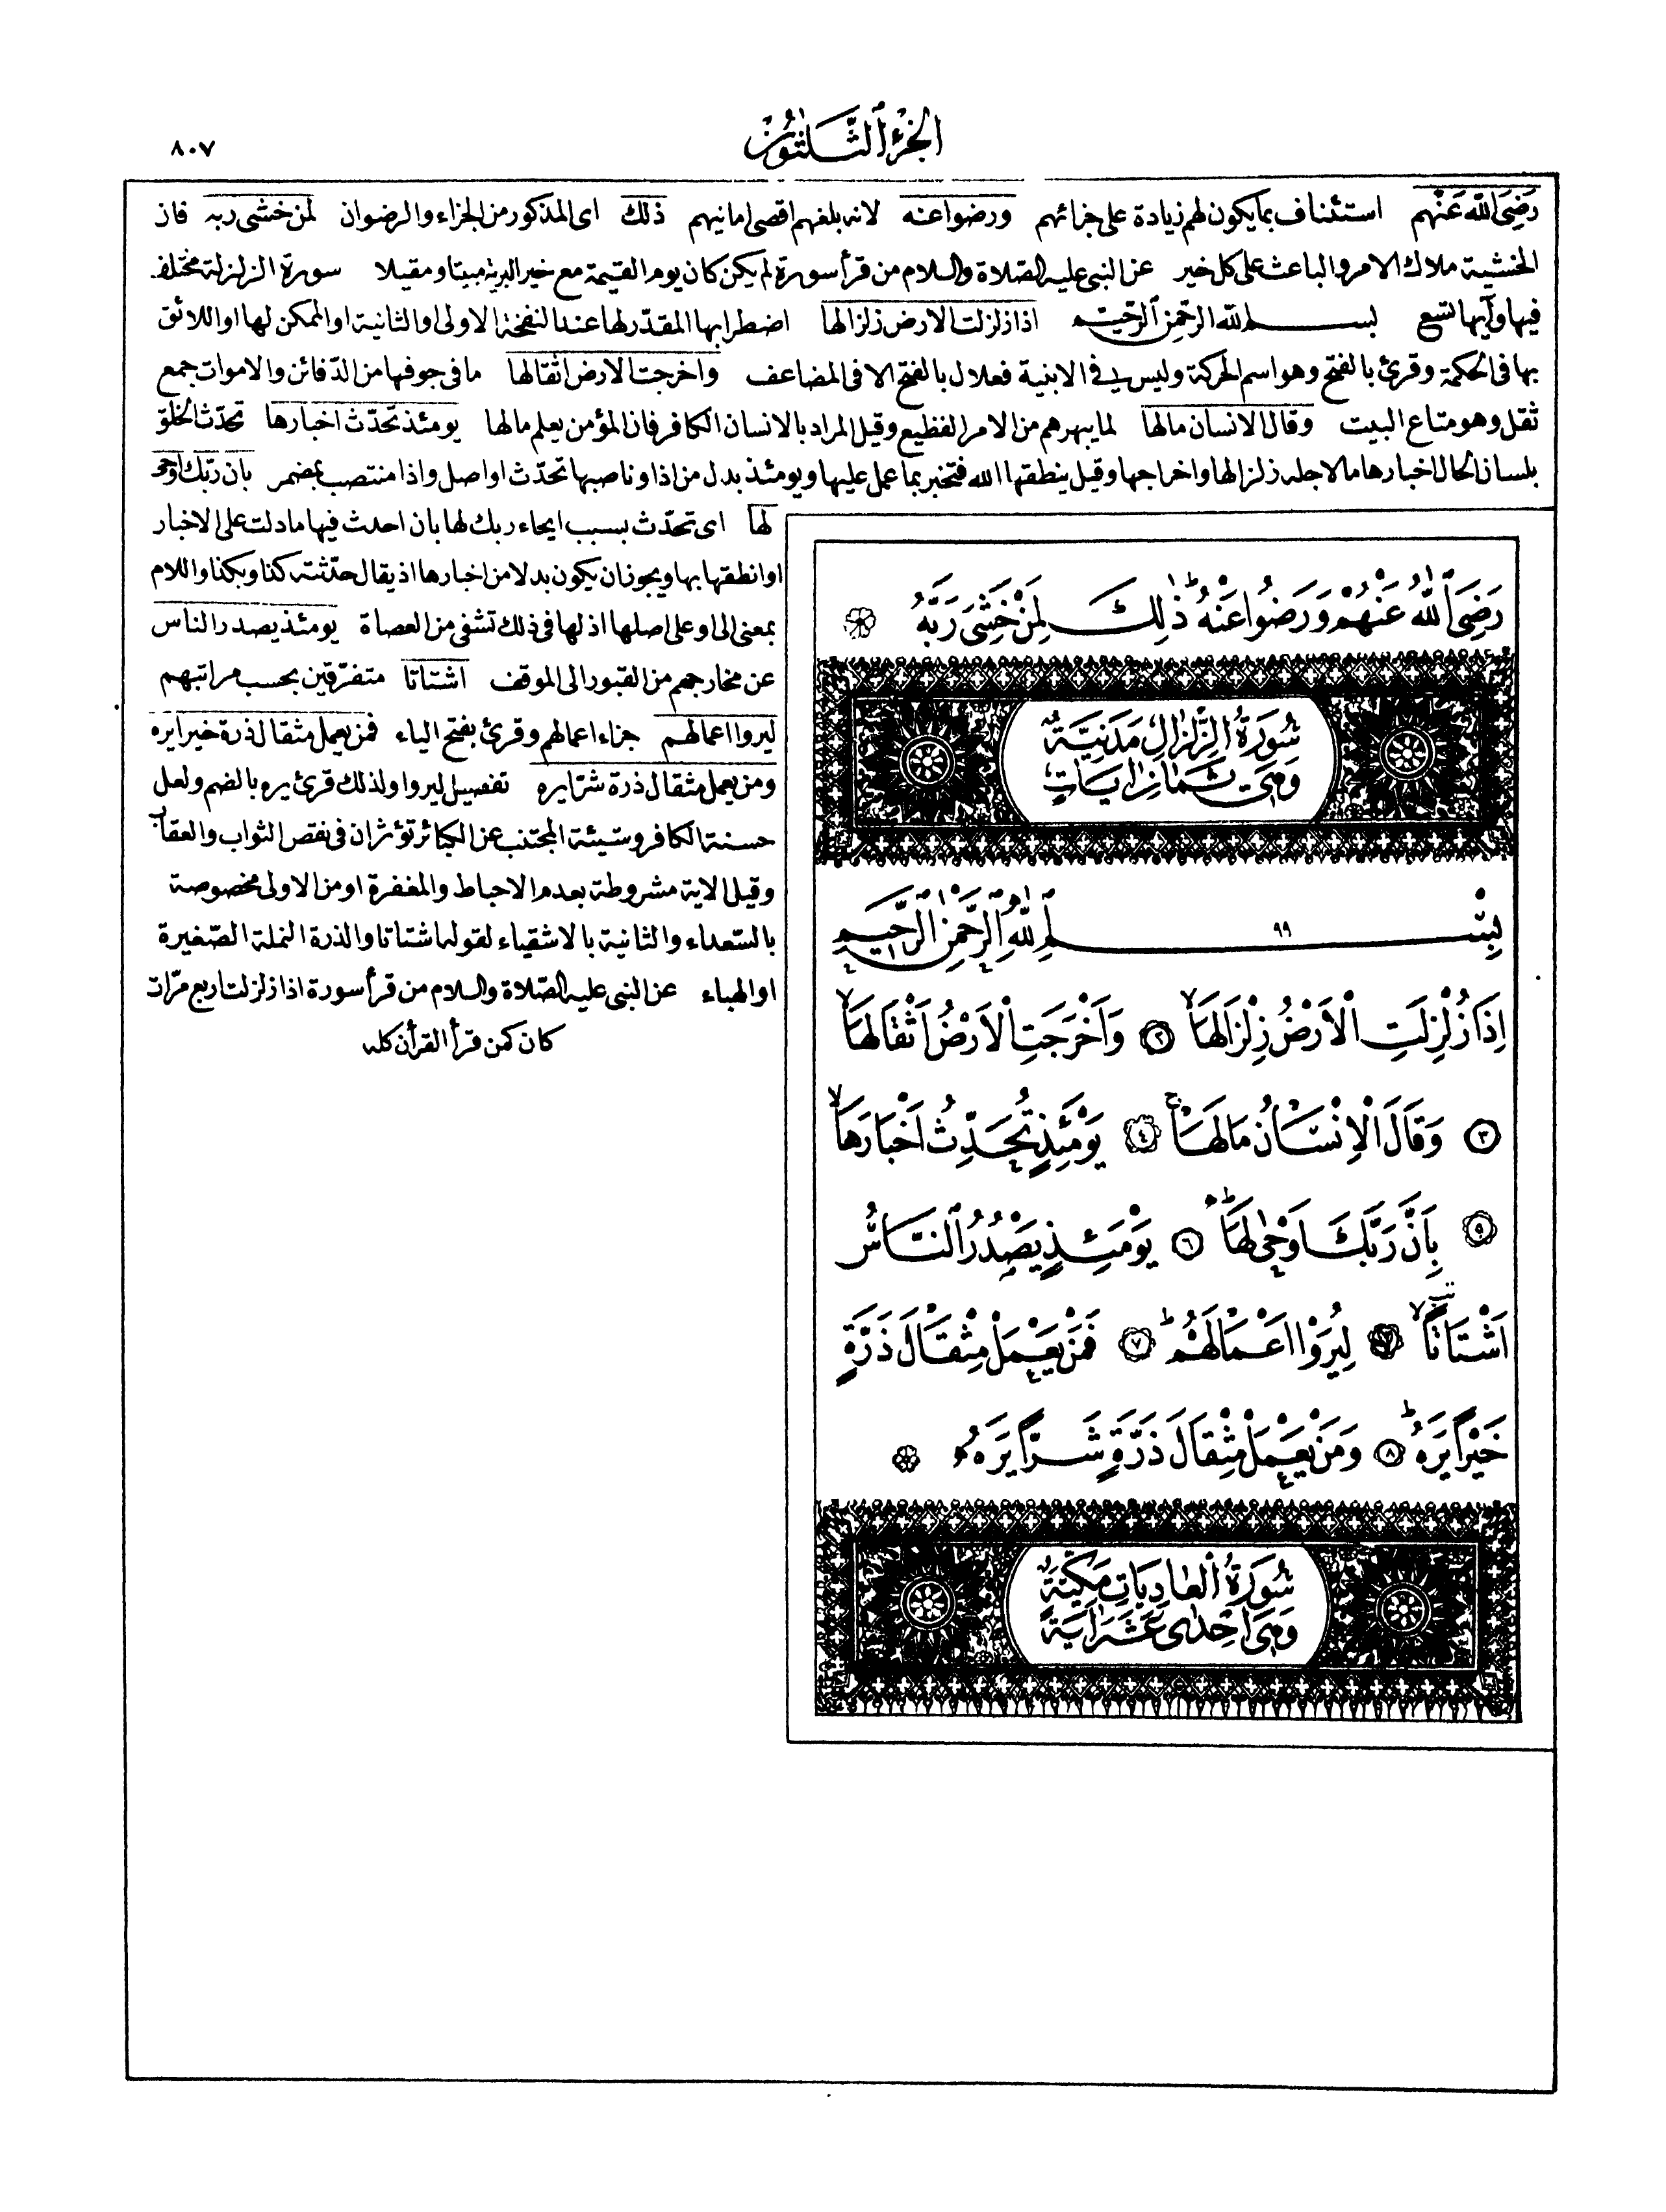 الجزء الثلثون
٨٠٧
رَضِيَ اللّٰه عَنْهم استئناف بما يكون لهم زيادة على جزائهم ورضوا عنه لانه بلغهم اقصى امانيهم ذلك اى المذكور من الجزاء والرضوان لمن خشى ربه فان
الخشية ملاك الامر والباعث على كل خير عن النبى عليه الصّلاة والسلام من قرأ سورة لم يكن كان يوم القيمة مع خير البرية مبيتا ومقيلا سورة الزلزلة مختلف
فيها وآيها تسع بسم الله الرحمن الرحيم اذا زلزلت الارض زلزالها اضطرابها المقدّر لها عند النفخة الاولى او الثانية او الممكن لها او اللائق
بها فى الحكمة وقرئ بالفتح وهو اسم الحركة وليس فى الابنية فعلال بالفتح الا فى المضاعف واخرجت الارض اثقالها ما فى جوفها من الدّفائن والاموات جمع
ثقل وهو متاع البيت وقال الانسان مالها لما يبهرهم من الامر الفظيع وقيل المراد بالانسان الكافر فان المؤمن يعلم مالها يومئذ تحدّث اخبارها تحدّث الخلق
بلسان الحال اخبارها ما لاجله زلزالها واخراجها وقيل ينطقها الله فتخبر بما عمل عليها ويومئذ بدل من اذا وناصبها تحدّث او اصل واذا منتصب بمضمر بان ربّك اوحى
لها اى تحدّث بسبب ايحاء ربك لها بان احدث فيها ما دلت على الاخبار
او انطقها بها ويجوز ان يكون بدلا من اخبارها اذ يقال حدّثته كذا وبكذا واللام
بمعنى الى او على اصلها اذ لها فى ذلك تشفى من العصاة يومئذ يصدر الناس
عن مخارجهم من القبور الى الموقف اشتاتا متفرّقين بحسب مراتبهم
ليروا اعمالهم جزاء اعمالهم وقرئ بفتح الياء فمن يعمل مثقال ذرة خيرا يره
ومن يعمل مثقال ذرة شرّا يره تفصيل ليروا ولذلك قرئ يره بالضم ولعل
حسنة الكافر وسيّئة المجتنب عن الكبائر تؤثران فى نقص الثواب والعقاب
وقيل الاية مشروطة بعدم الاحباط والمغفرة او من الاولى مخصوصة
بالسّعداء والثانية بالاشقياء لقوله اشتاتا والذرة النملة الصّغيرة
او الهباء عن النبى عليه الصّلاة والسلام من قرأ سورة اذا زلزلت اربع مرّات
كان كمن قرأ القرأن كله
رَضِيَ اللّٰهُ عَنْهُمْ وَرَضُوا عَنْهُ ذٰلِكَ لِمَنْ خَشِيَ رَبَّهُ
سُورَةُ الزِّلْزَالِ مَدَنِيَّةٌ
وَهِيَ ثَمَانِ اٰيَاتٍ
بِسْمِ اللّٰهِ الرَّحْمٰنِ الرَّحِيمِ ٩٩
اِذَا زُلْزِلَتِ الْاَرْضُ زِلْزَالَهَا ٢ وَاَخْرَجَتِ الْاَرْضُ اَثْقَالَهَا
٣ وَقَالَ الْاِنْسَانُ مَا لَهَا ٤ يَوْمَئِذٍ تُحَدِّثُ اَخْبَارَهَا
٥ بِاَنَّ رَبَّكَ اَوْحٰى لَهَا ٦ يَوْمَئِذٍ يَصْدُرُ النَّاسُ
اَشْتَاتًا لِيُرَوْا اَعْمَالَهُمْ ٧ فَمَنْ يَعْمَلْ مِثْقَالَ ذَرَّةٍ
خَيْرًا يَرَهُ ٨ وَمَنْ يَعْمَلْ مِثْقَالَ ذَرَّةٍ شَرًّا يَرَهُ
سُورَةُ الْعَادِيَاتِ مَكِّيَّةٌ
وَهِيَ اِحْدٰى عَشَرَ اٰيَةً